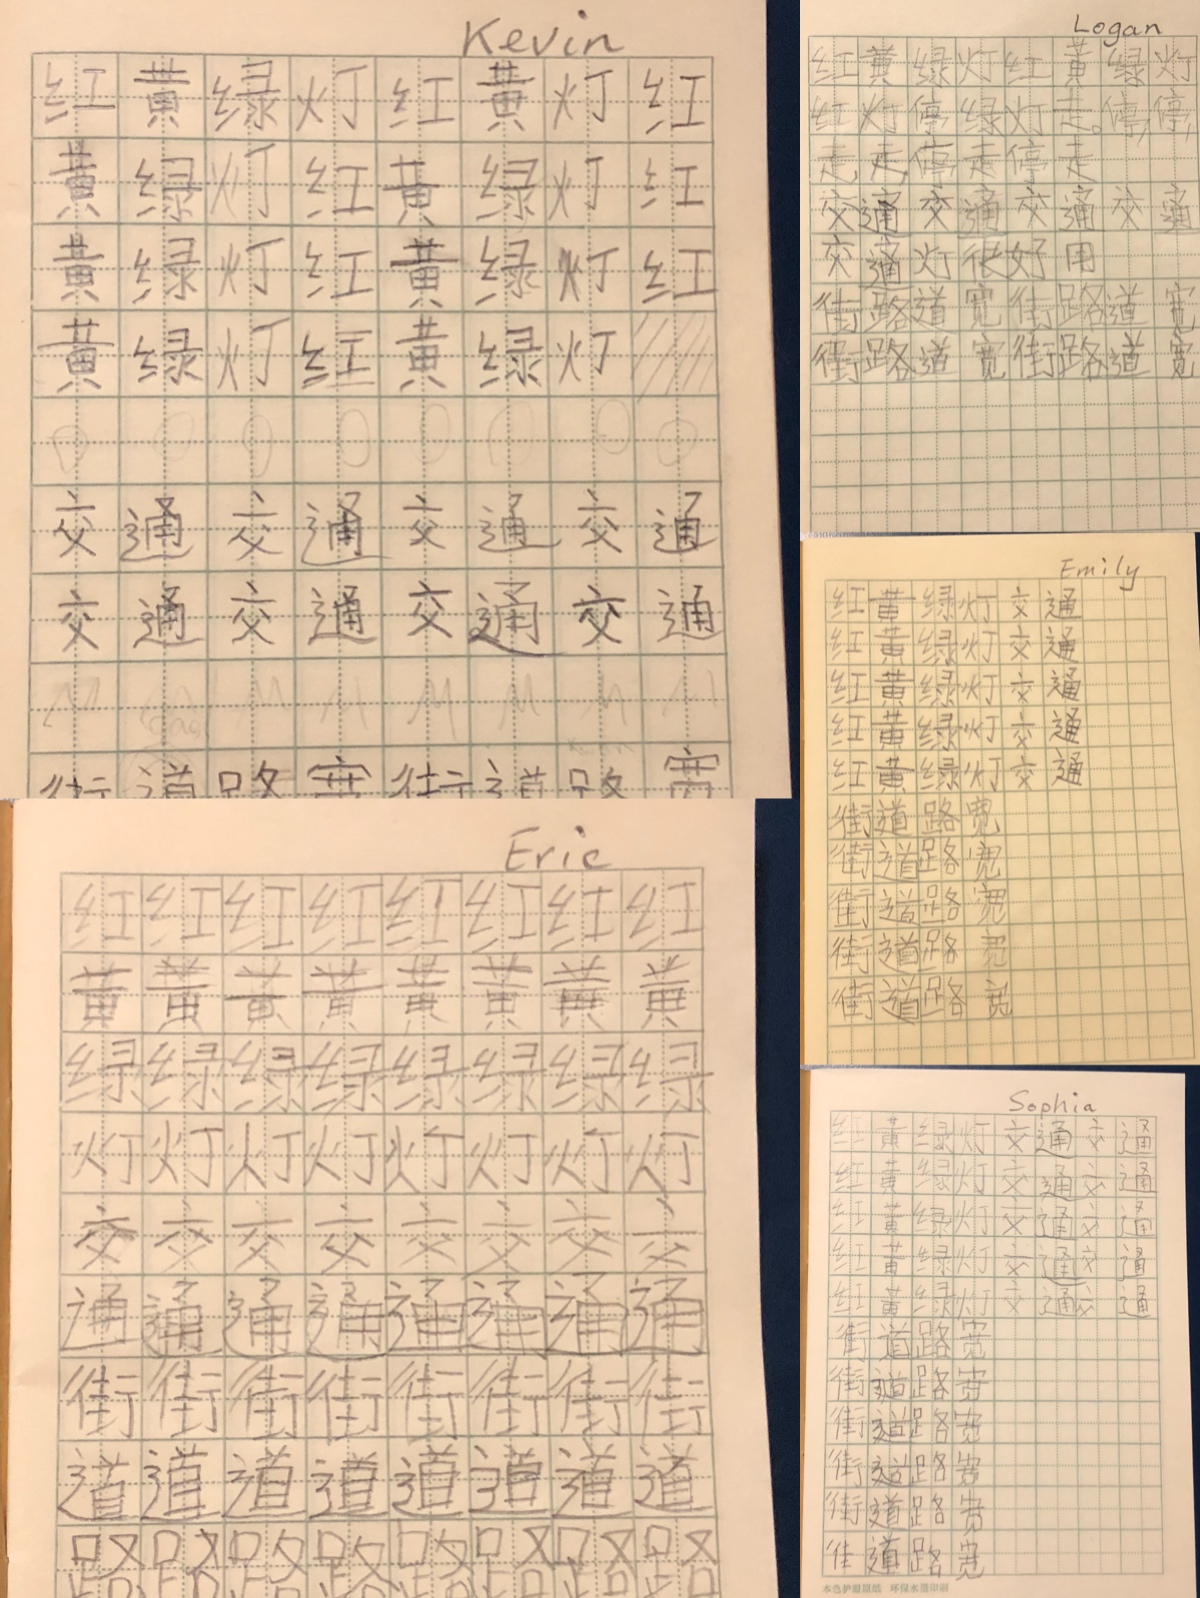 Kevin
红黄绿灯红黄灯红
黄绿灯红黄绿灯红
黄绿灯红黄绿灯红
黄绿灯红黄绿灯
交通交通交通交通
交通交通交通交通
街道路宽街道路宽
Logan
红黄绿灯红黄绿灯
红灯停绿灯走。停,停,
走走停走停走
交通交通交通交通
交通灯很好用
街路道宽街路道宽
街路道宽街路道宽
Emily
红黄绿灯交通
红黄绿灯交通
红黄绿灯交通
红黄绿灯交通
红黄绿灯交通
街道路宽
街道路宽
街道路宽
街道路宽
街道路宽
Eric
红红红红红红红红
黄黄黄黄黄黄黄黄
绿绿绿绿绿绿绿绿
灯灯灯灯灯灯灯灯
交交交交交交交交
通通通通通通通通
街街街街街街街街
道道道道道道道道
路路路路路路路路
Sophia
红黄绿灯交通交通
红黄绿灯交通交通
红黄绿灯交通交通
红黄绿灯交通交通
红黄绿灯交通交通
街道路宽
街道路宽
街道路宽
街道路宽
街道路宽
街道路宽
本色护眼原纸 环保水墨印刷